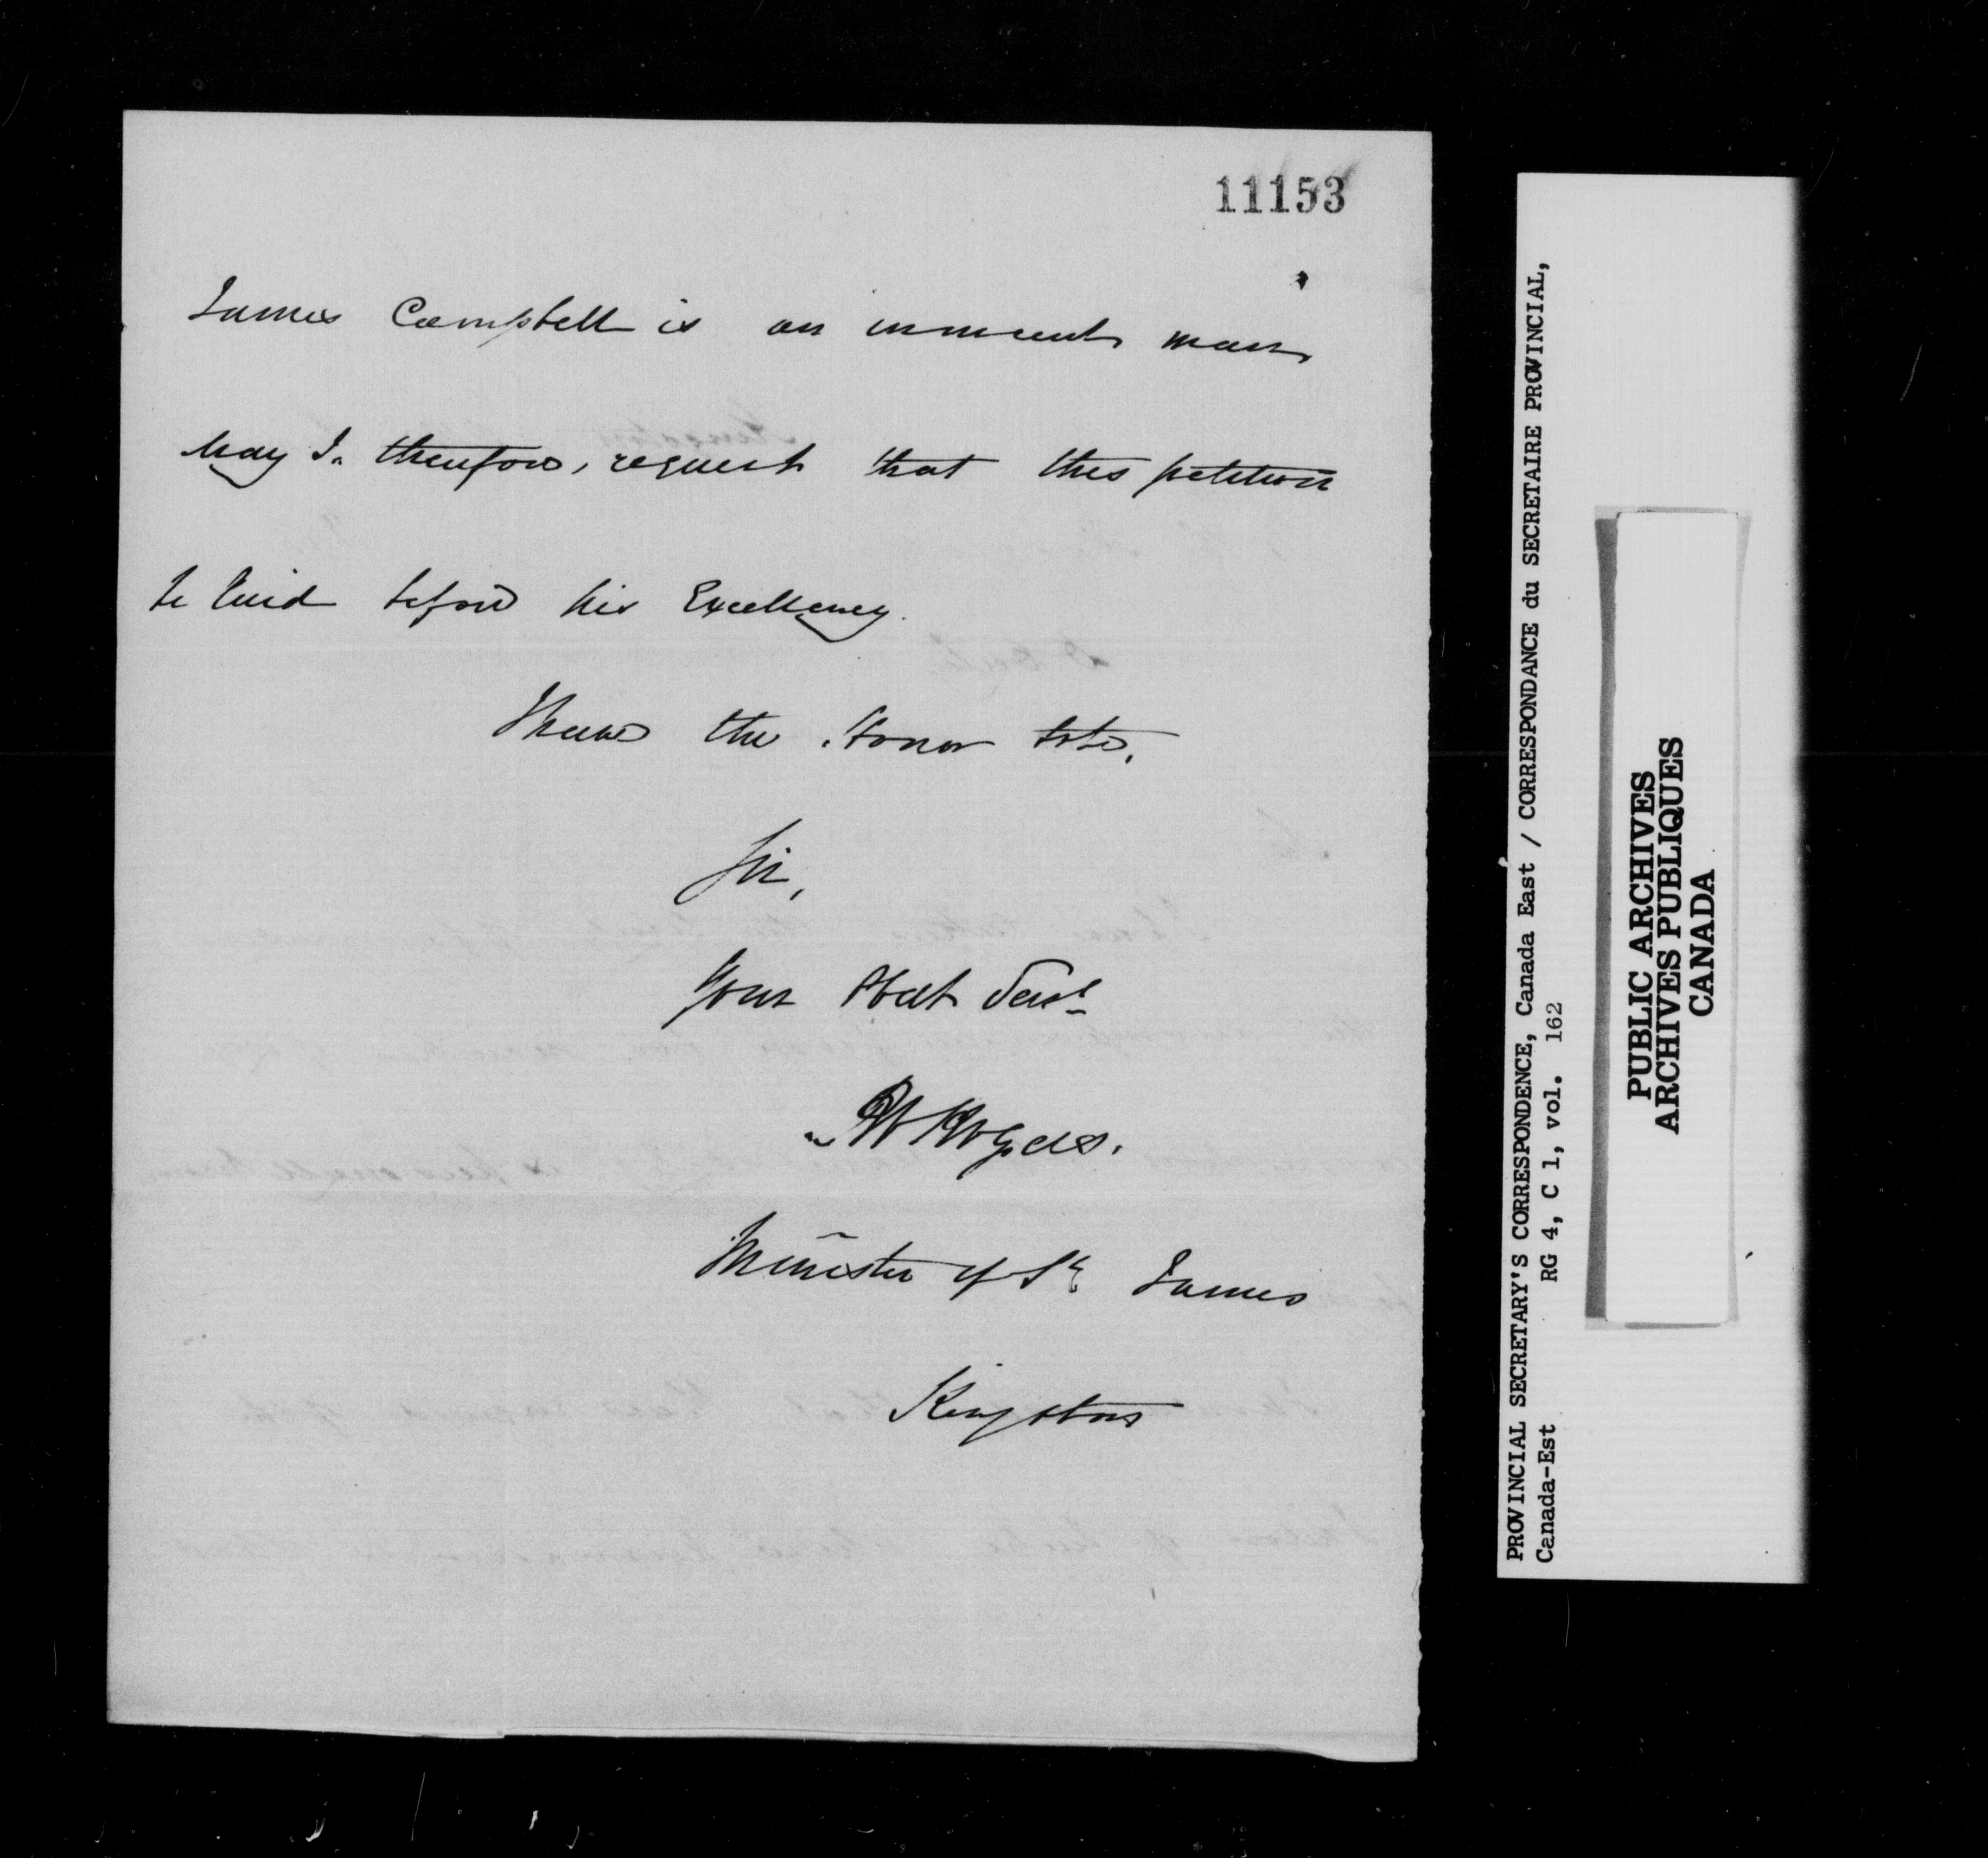 11153
James Campbell is an innocent man
May I, therefore, request that this petition
be laid before his Excellency.
I have the Honor to be,
Sir,
Your Obedt Servt
Rogers.
Minister of St James
Kingston
PROVINCIAL SECRETARY'S CORRESPONDENCE, Canada East / CORRESPONDANCE du SECRETAIRE PROVINCIAL,
Canada-Est RG 4, C 1, vol. 162
PUBLIC ARCHIVES
ARCHIVES PUBLIQUES
CANADA